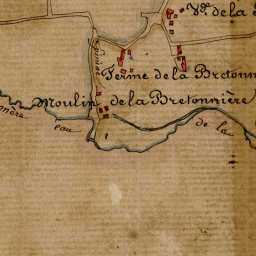 V.ˢ de la
Ferme de la Bretonn
Moulin de la Bretonnière
eau
de la